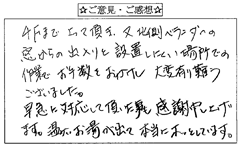 ☆ご意見・ご感想☆
4Fまで上って頂き、又北側ベランダへの
窓からの出入りと設置しにくい場所での
作業でお手数をおかけし大変有り難う
ございました。
早急に対応して頂いた事も感謝申し上げ
ます。お湯が出て本当にホッとしています。